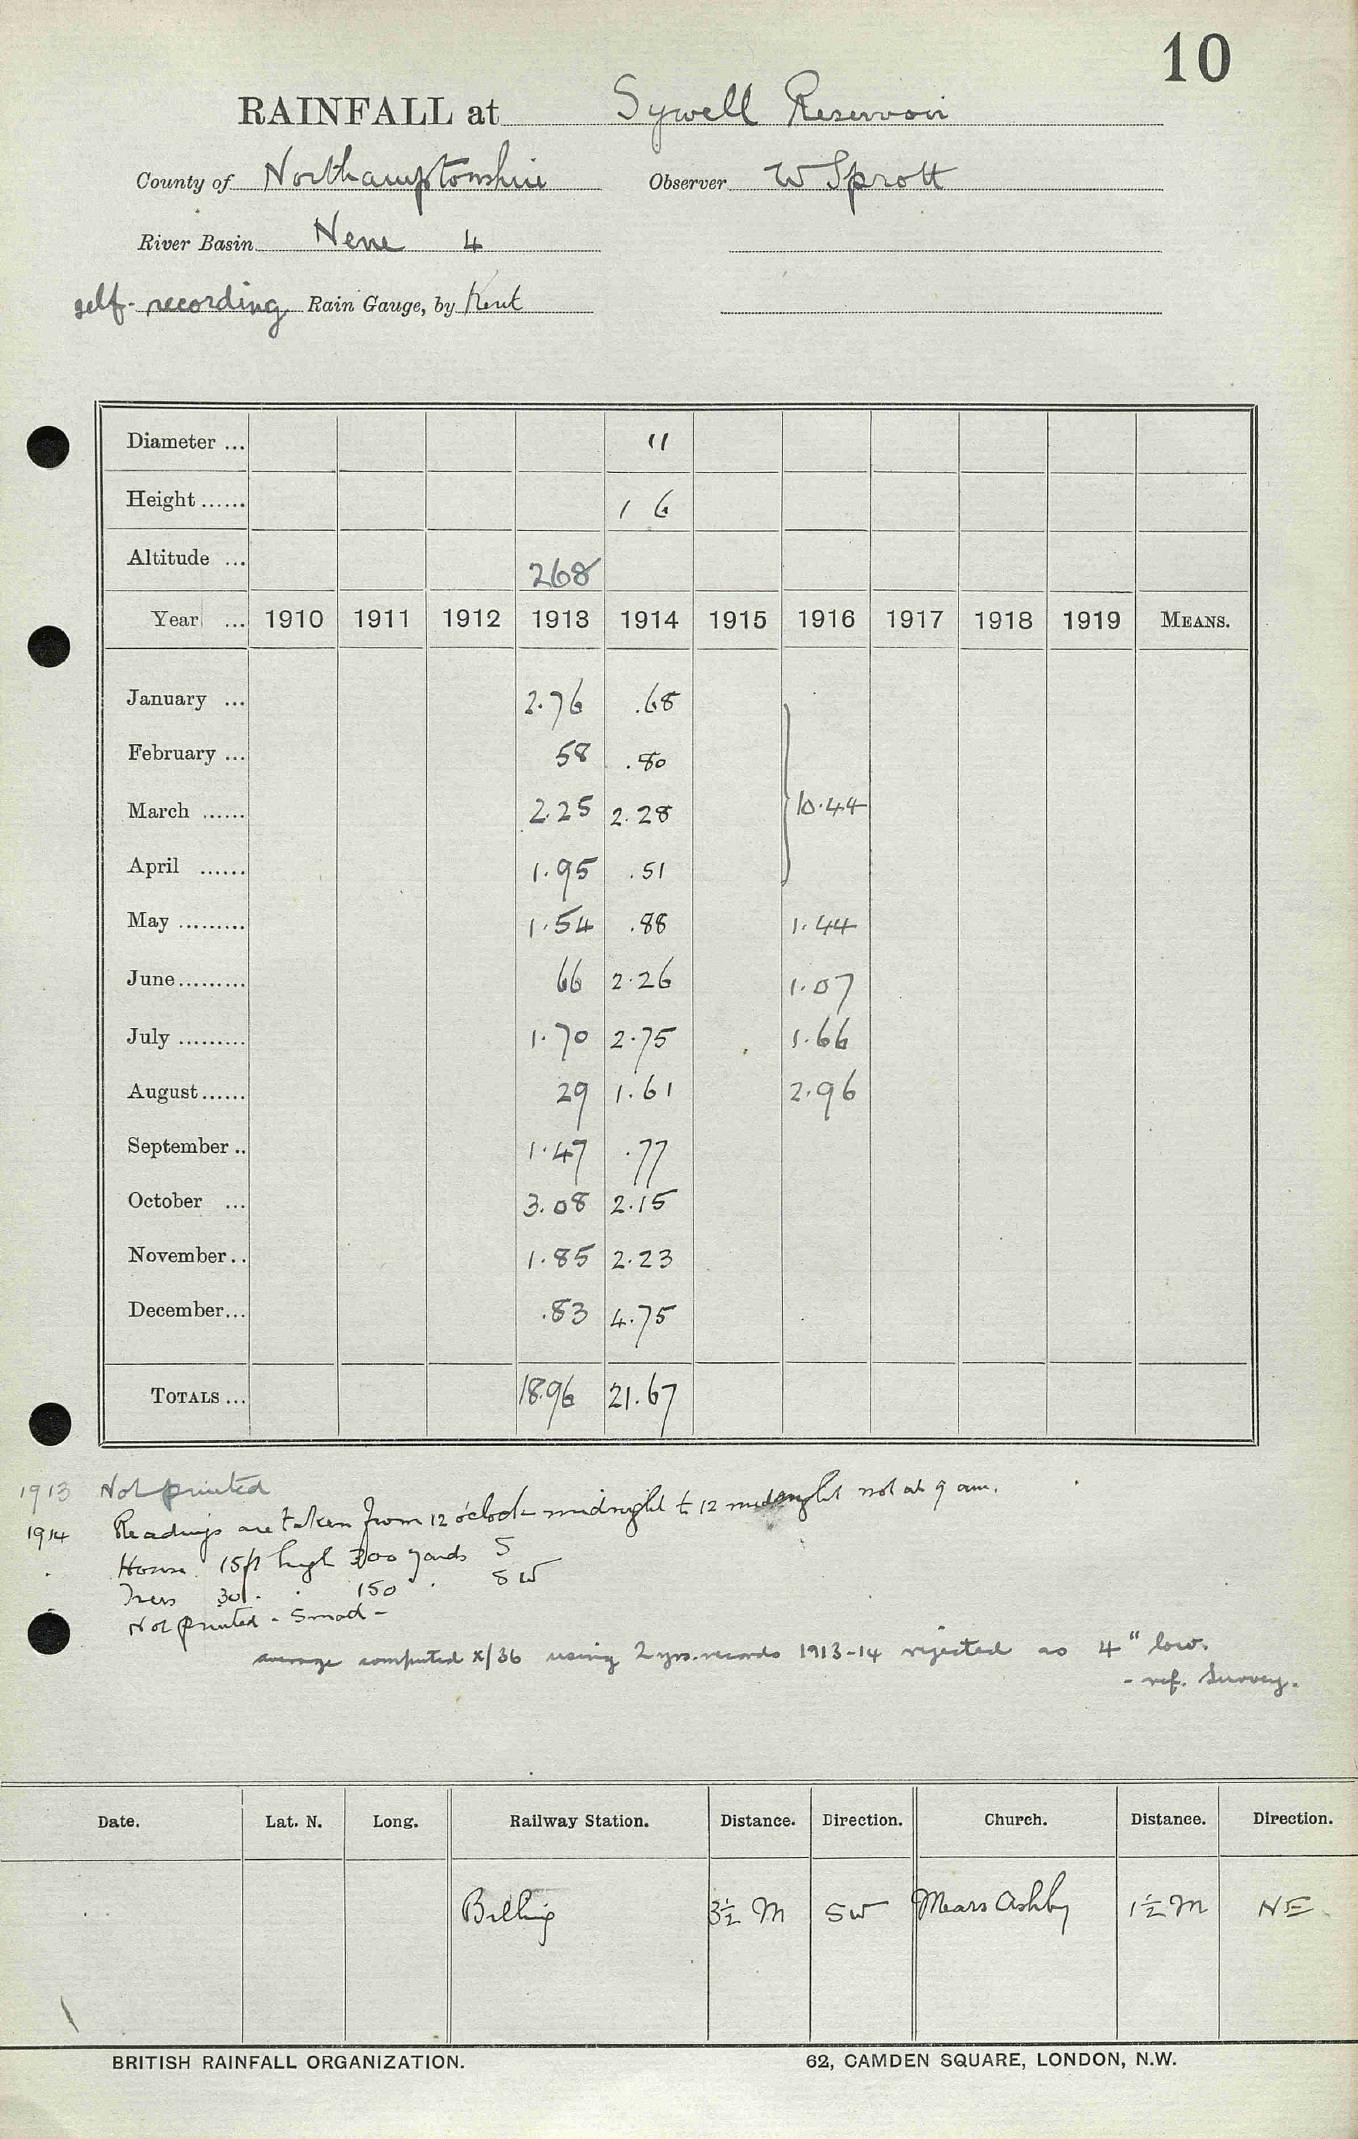 10
RAINFALL at Sywell Reservoir
County of Northamptonshire Observer W Sprott
River Basin Nene 4
self-recording Rain Gauge, by Kent
Diameter ... 11
Height ...... 1 6
Altitude ... 268
Year ... 1910 1911 1912 1913 1914 1915 1916 1917 1918 1919 MEANS.
January ... 2.76 .68
February ... 58 .80
March ...... 2.25 2.28 } 10.44
April ...... 1.95 .51
May ......... 1.54 .88 1.44
June......... 66 2.26 1.07
July ......... 1.70 2.75 1.66
August...... 29 1.61 2.96
September .. 1.47 .77
October ... 3.08 2.15
November.. 1.85 2.23
December... .83 4.75
TOTALS ... 18.96 21.67
1913 Not printed
1914 Readings are taken from 12 o'clock midnight to 12 midnight not at 9 am.
House 15ft high 300 yards S
Trees 30 . . 150 . SW
Not printed - Small -
average computed x/36 using 2 yrs. records 1913-14 rejected as 4" low.
- ref. Survey.
Date. Lat. N. Long. Railway Station. Distance. Direction. Church. Distance. Direction.
Billing 3½ M SW Mears Ashby 1½ M NE
BRITISH RAINFALL ORGANIZATION. 62, CAMDEN SQUARE, LONDON, N.W.